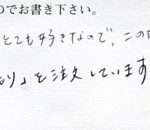 のでお書き下さい。
とても好きなので、この
り」を注文しています